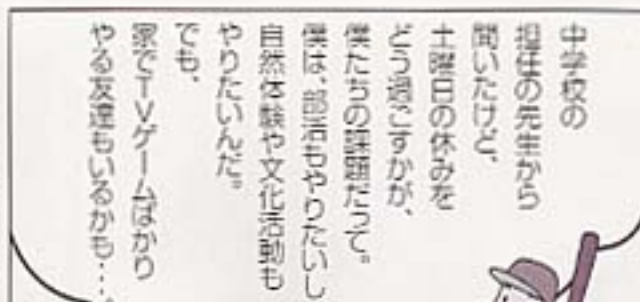 中学校の
担任の先生から
聞いたけど、
土曜日の休みを
どう過ごすかが、
僕たちの課題だって。
僕は、部活もやりたいし
自然体験や文化活動も
やりたいんだ。
でも、
家でTVゲームばかり
やる友達もいるかも…。